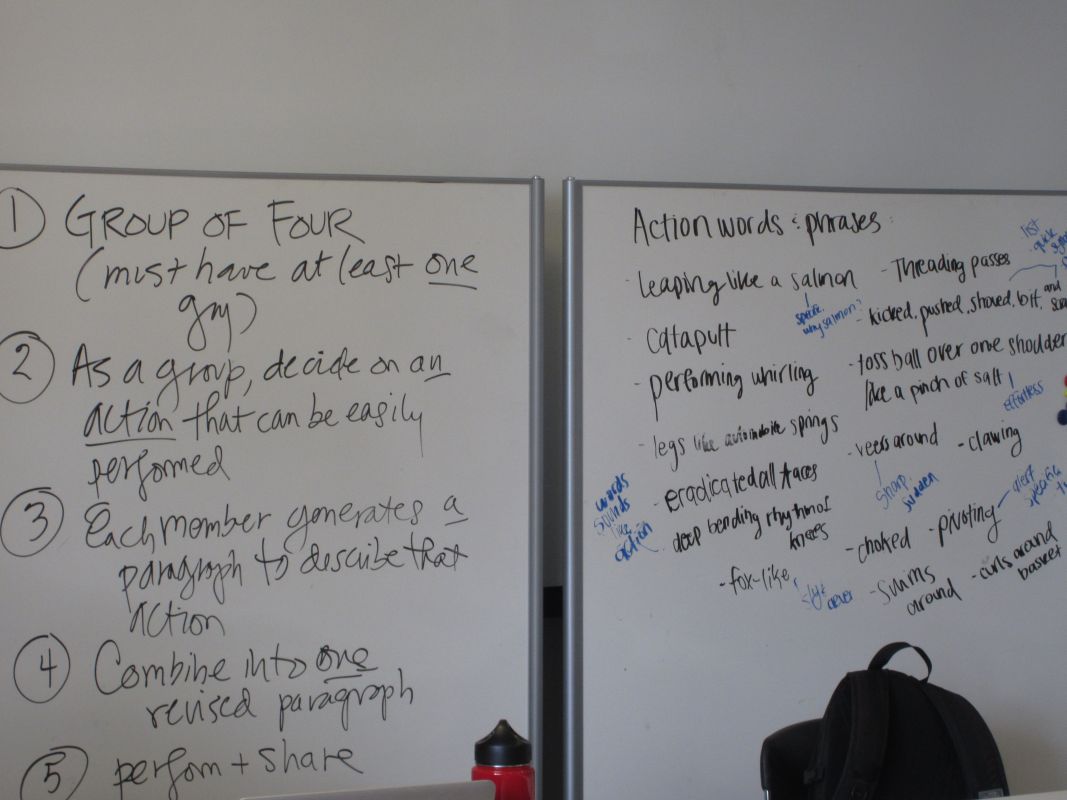 1 GROUP OF FOUR
(must have at least one
guy)
2 As a group, decide on an
action that can be easily
performed
3 Each member generates a
paragraph to describe that
action
4 Combine into one
revised paragraph
5 perfom + share
Action words & phrases:
- leaping like a salmon
specific
why salmon?
- catapult
- performing whirling
- legs like automobile springs
- eradicated all traces
words
sounds
like
action
- deep bending rhythm of
knees
- fox-like
sly
clever
- Threading passes
list
quick
- kicked, pushed, shoved, bit, and
- toss ball over one shoulder
like a pinch of salt
effortless
- veers around
sharp
sudden
- clawing
- choked
- pivoting
alert
specific
- swims
around
- curls around
basket